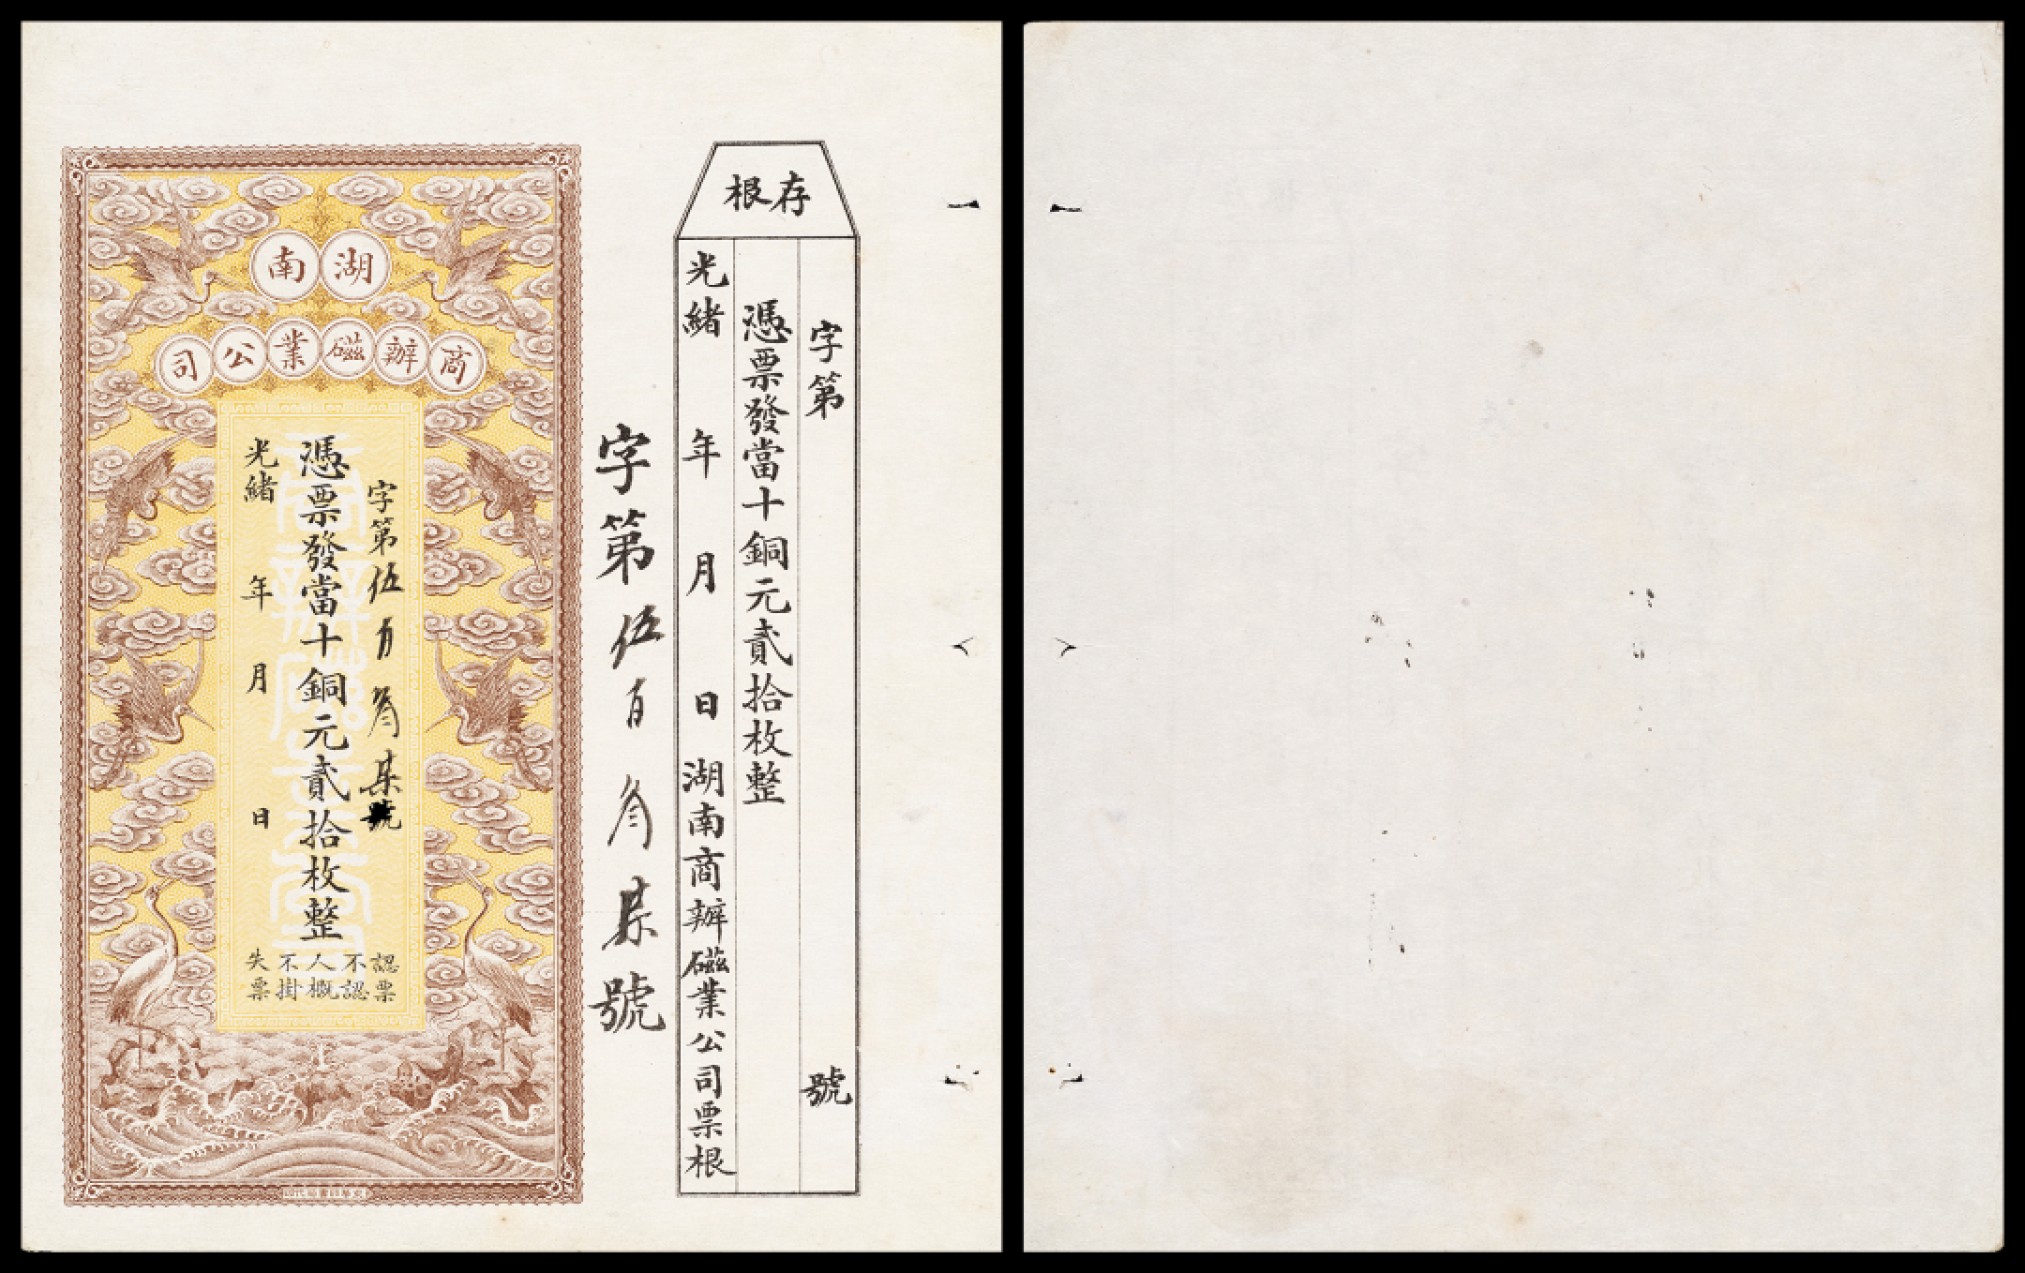 存根
字第 號
憑票發當十銅元貳拾枚整
光緒 年 月 日 湖南商辦磁業公司票根
字第伍百叁柒號
湖南
商辦磁業公司
字第伍百叁柒號
憑票發當十銅元貳拾枚整
光緒 年 月 日
認票
不認
人概
不掛
失票